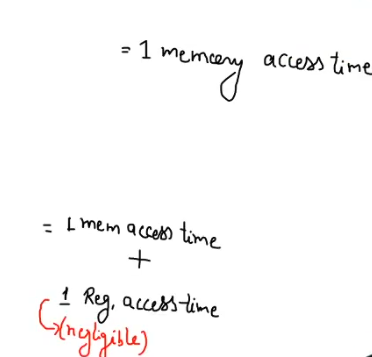 = 1 memory access time
= 1 mem access time
+
1 Reg. access time
(negligible)